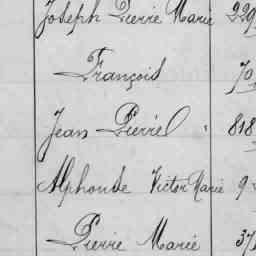 Joseph Pierre Marie 229
François 70
Jean Pierre 818
Alphonse Victor Marie 9
Pierre Marie 37